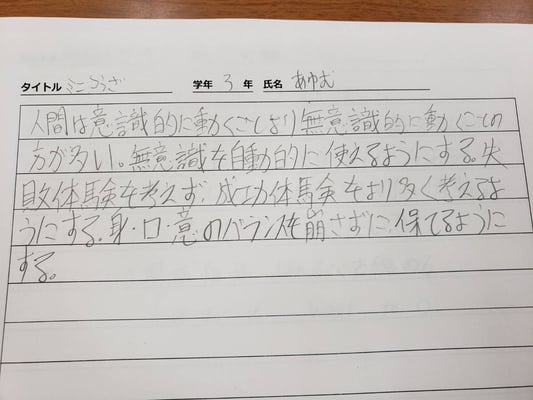 タイトル ミニこうざ 学年 3 年 氏名 あゆむ
人間は意識的に動くことより無意識的に動くことの
方が多い。無意識を自動的に使えるようにする。失
敗体験を考えず、成功体験をより多く考えるよ
うにする。身・口・意のバランスを崩さずに、保てるように
する。